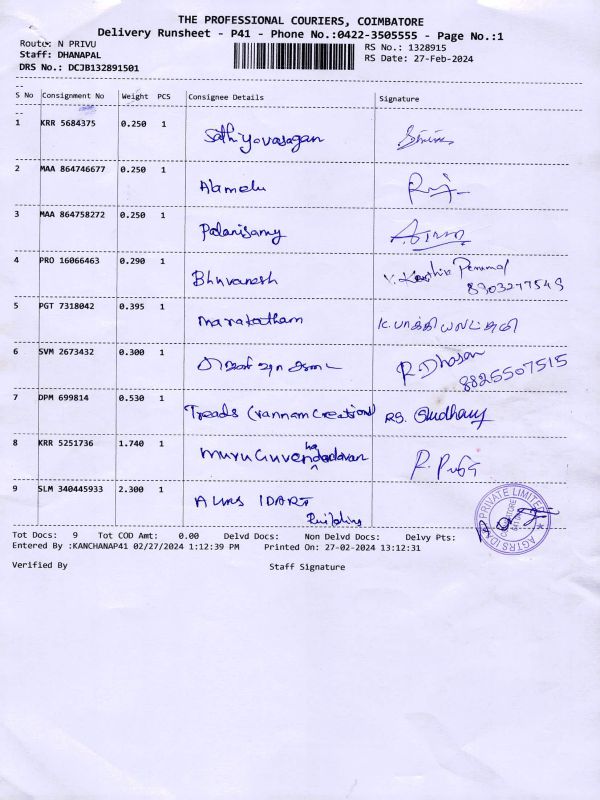 THE PROFESSIONAL COURIERS, COIMBATORE
Delivery Runsheet - P41 - Phone No.:0422-3505555 - Page No.:1
Route: N PRIVU
RS No.: 1328915
Staff: DHANAPAL
RS Date: 27-Feb-2024
DRS No.: DCJB132891501
S No Consignment No Weight PCS Consignee Details Signature
1 KRR 5684375 0.250 1 Sathiyavasagan
2 MAA 864746677 0.250 1 Alamelu
3 MAA 864758272 0.250 1 Palanisamy
4 PRO 16066463 0.290 1 Bhuvanesh
8903277549
5 PGT 7318042 0.395 1 Maragatham
6 SVM 2673432 0.300 1 R Dhasan
8825507515
7 DPM 699814 0.530 1 Treads (vannam creation)
8 KRR 5251736 1.740 1
9 SLM 340445933 2.300 1
Building
PRIVATE LIMITED
Tot Docs: 9 Tot COD Amt: 0.00 Delvd Docs: Non Delvd Docs: Delvy Pts:
Entered By :KANCHANAP41 02/27/2024 1:12:39 PM Printed On: 27-02-2024 13:12:31
Verified By Staff Signature